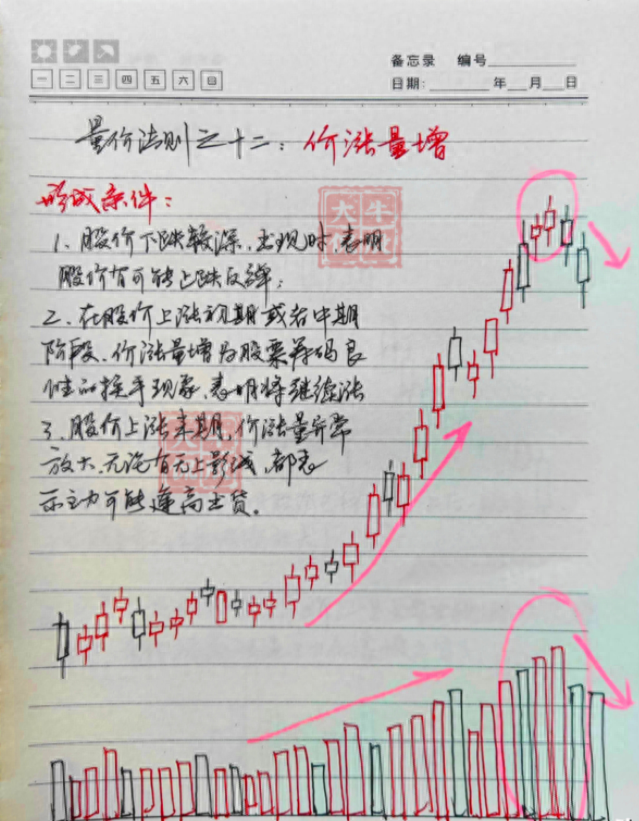 备忘录 编号
一 二 三 四 五 六 日
日期: 年 月 日
量价法则之十二：价涨量增
形成条件：
大牛
1、股价下跌较深，出现时，表明
股价有可能止跌反弹；
2、在股价上涨初期或者中期
阶段，价涨量增为股票筹码良
性的换手现象，表明将继续涨
3、股价上涨末期，价涨量异常
放大，无论有无上影线，都表
示主力可能逢高出货。